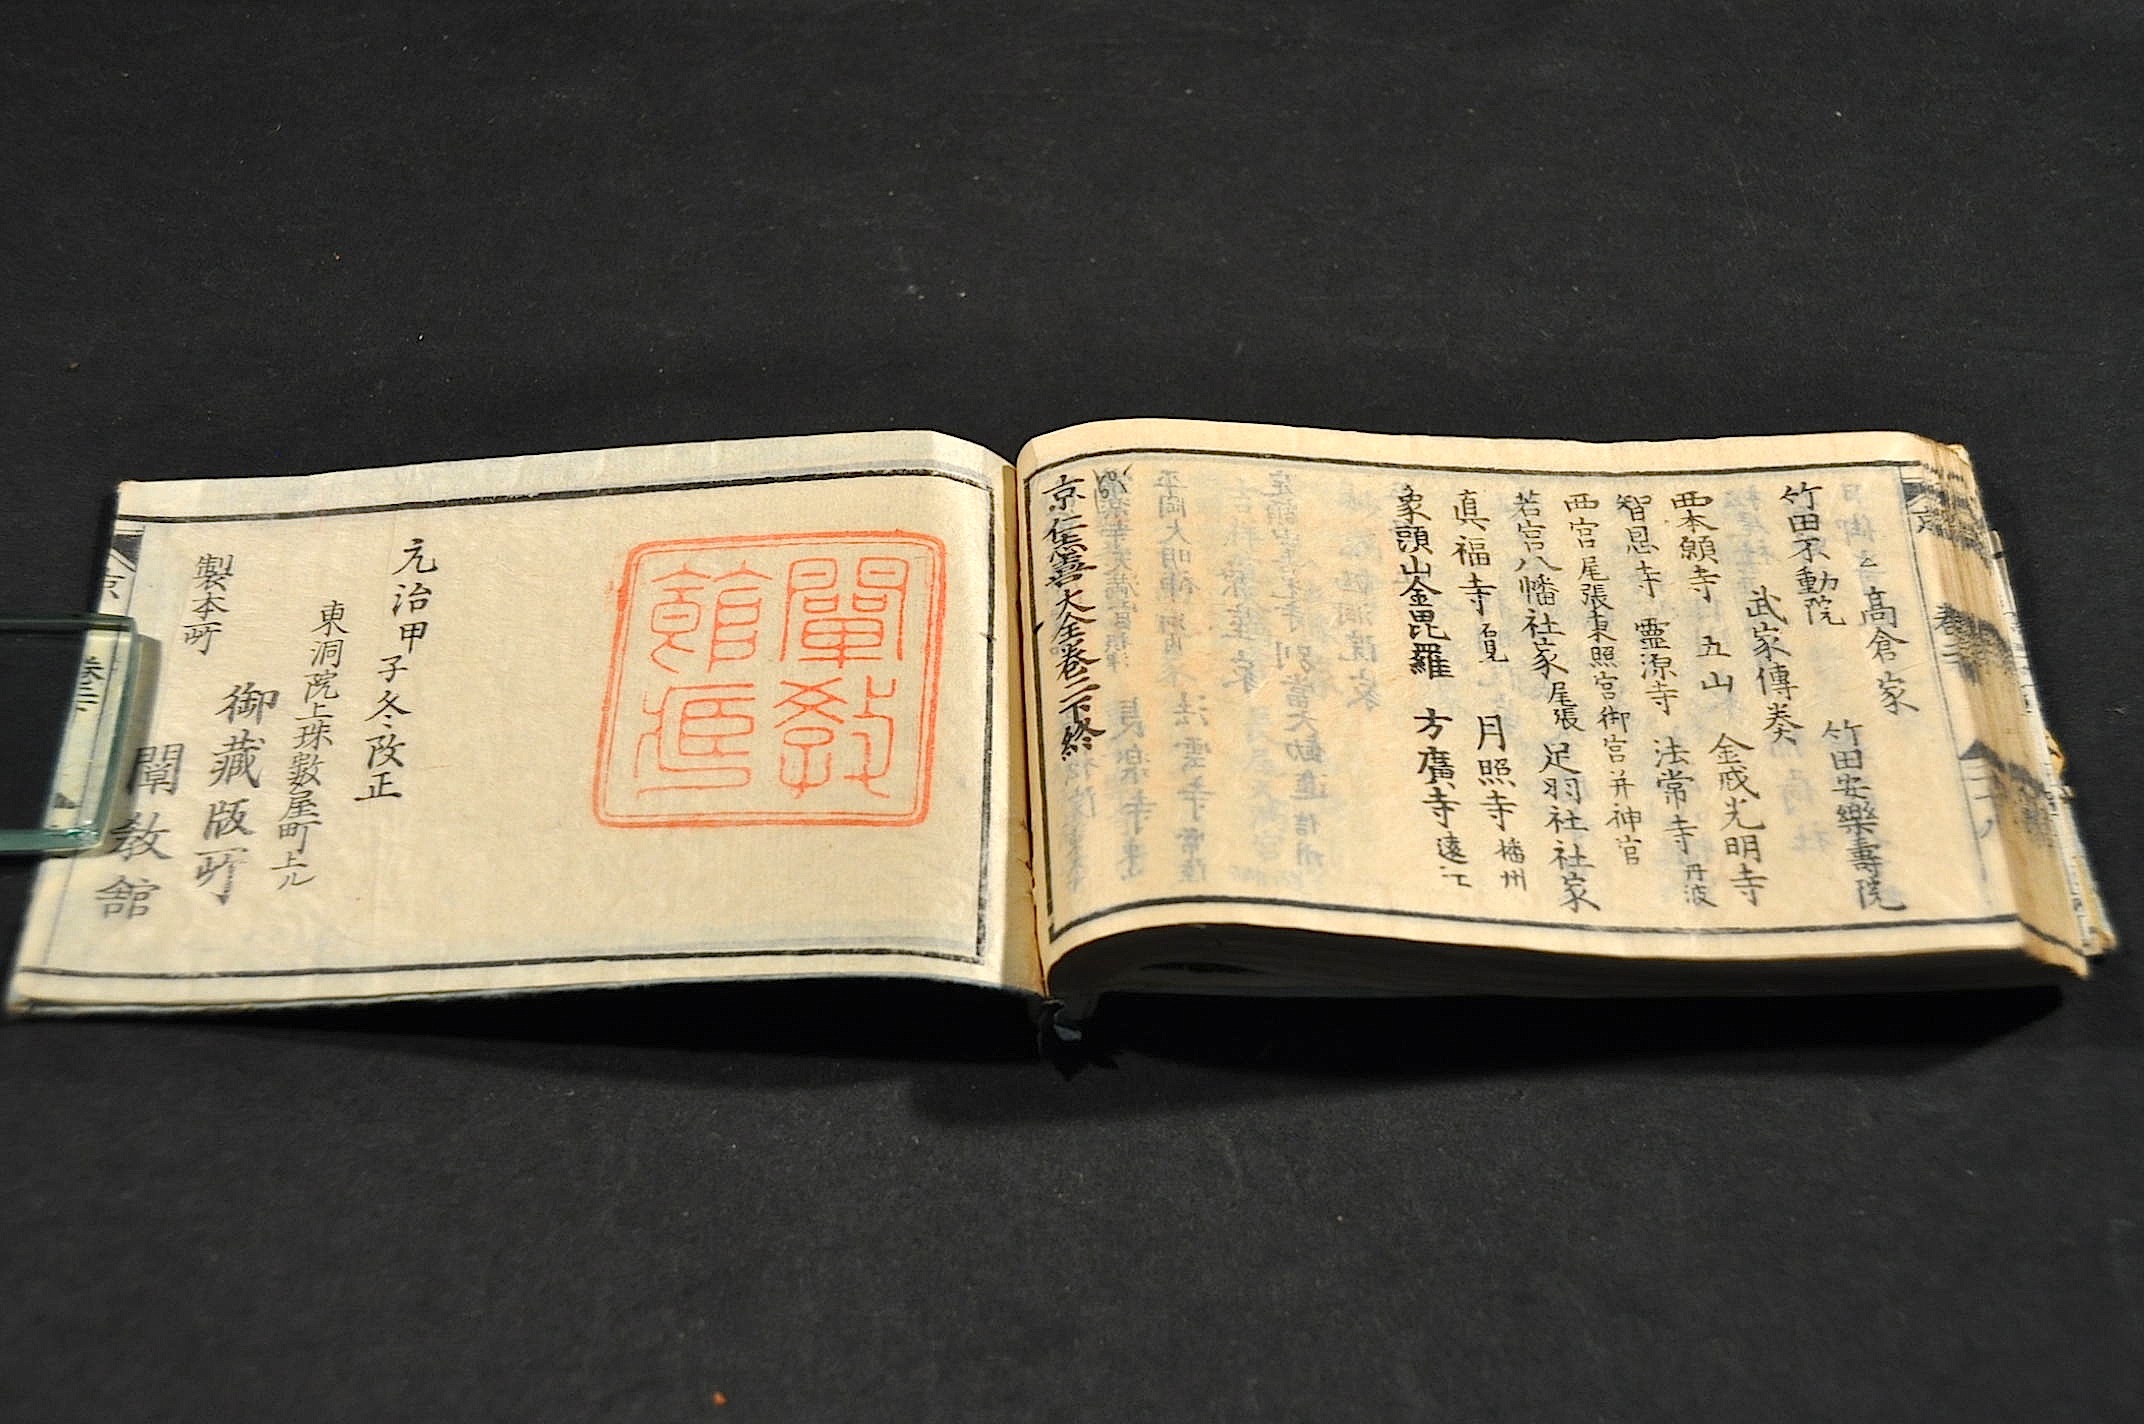 高倉家 竹田安樂壽院
竹田不動院
武家傳奏
西本願寺 五山 金戒光明寺
智恩寺 靈源寺 法常寺 丹波
西宮 尾張東照宮御宮并神官
若宮八幡社家 尾張 足羽社社家
真福寺 月照寺 播州
象頭山金毘羅 方廣寺 遠江
大全卷二下終
闡教
館
元治甲子冬改正
東洞院上珠數屋町上ル
御藏版所
製本所
闡教舘